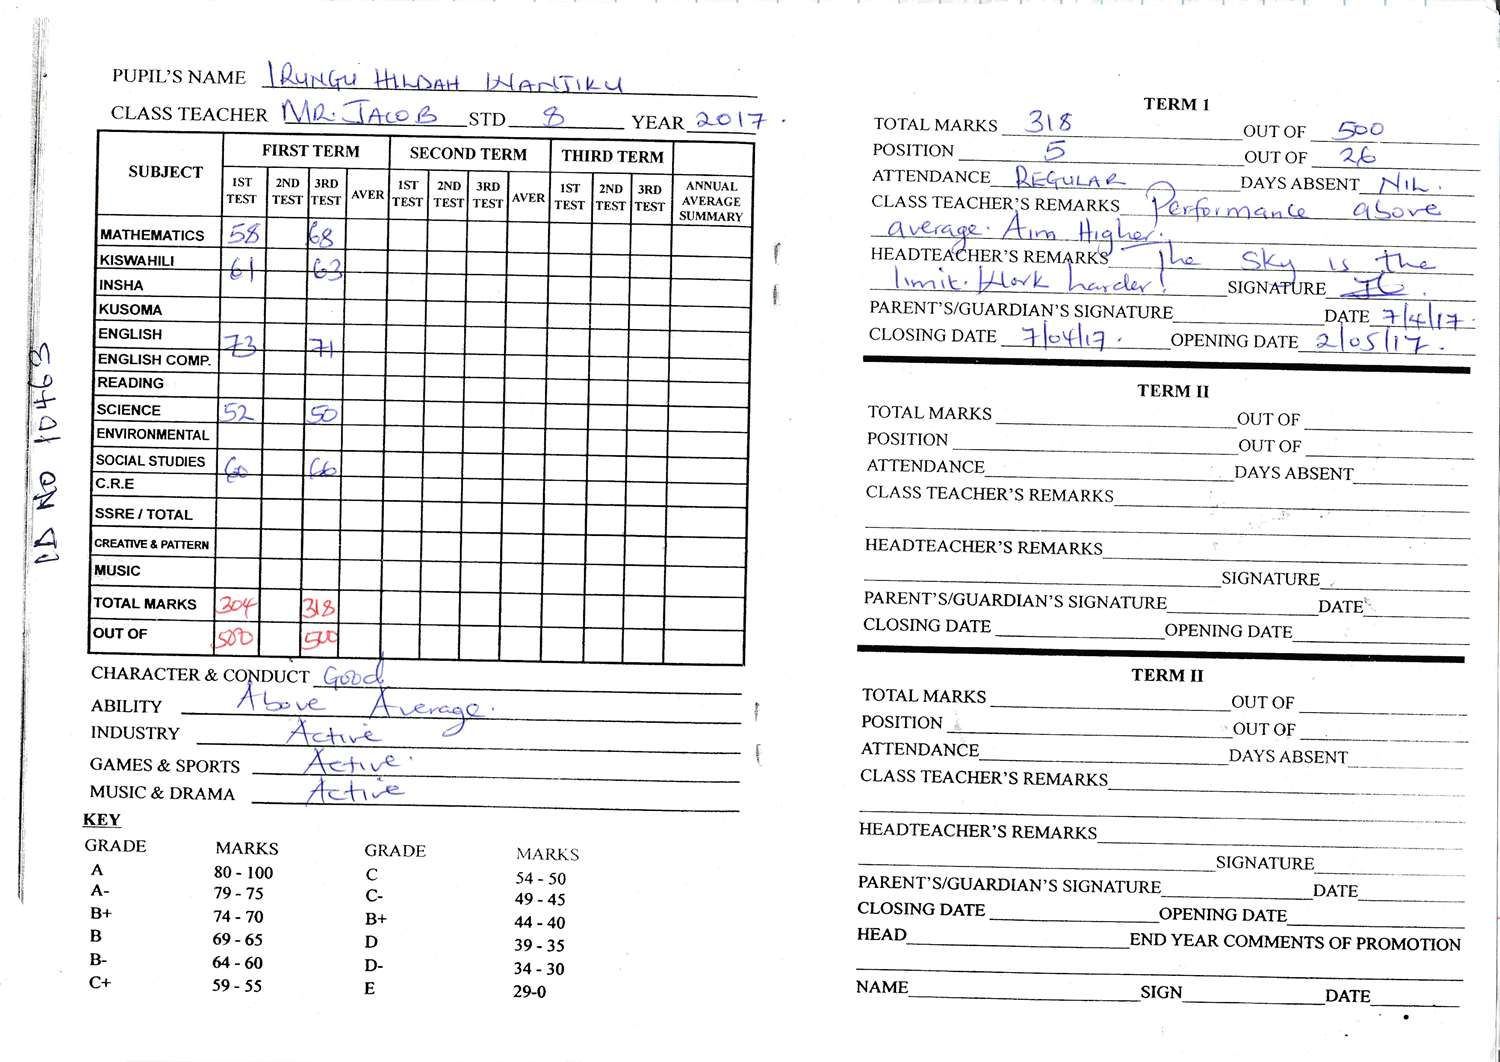 PUPIL'S NAME IRUNGU HILDAH WANJIKU
CLASS TEACHER MR. JACOB STD 8 YEAR 2017.
SUBJECT FIRST TERM SECOND TERM THIRD TERM
1ST TEST 2ND TEST 3RD TEST AVER 1ST TEST 2ND TEST 3RD TEST AVER 1ST TEST 2ND TEST 3RD TEST ANNUAL AVERAGE SUMMARY
MATHEMATICS 58 68
KISWAHILI 61 63
INSHA
KUSOMA
ENGLISH 73 71
ENGLISH COMP.
READING
SCIENCE 52 50
ENVIRONMENTAL
SOCIAL STUDIES 60 66
C.R.E
SSRE / TOTAL
CREATIVE & PATTERN
MUSIC
TOTAL MARKS 304 318
OUT OF 500 500
CHARACTER & CONDUCT Good
ABILITY Above Average.
INDUSTRY Active
GAMES & SPORTS Active.
MUSIC & DRAMA Active
KEY
GRADE MARKS GRADE MARKS
A 80 - 100 C 54 - 50
A- 79 - 75 C- 49 - 45
B+ 74 - 70 B+ 44 - 40
B 69 - 65 D 39 - 35
B- 64 - 60 D- 34 - 30
C+ 59 - 55 E 29-0
NO 10463
TERM 1
TOTAL MARKS 318 OUT OF 500
POSITION 5 OUT OF 26
ATTENDANCE REGULAR DAYS ABSENT NIL.
CLASS TEACHER'S REMARKS Performance above
average. Aim Higher.
HEADTEACHER'S REMARKS The Sky is the
limit. Work harder! SIGNATURE
PARENT'S/GUARDIAN'S SIGNATURE DATE 7/4/17.
CLOSING DATE 7/04/17. OPENING DATE 2/05/17.
TERM II
TOTAL MARKS OUT OF
POSITION OUT OF
ATTENDANCE DAYS ABSENT
CLASS TEACHER'S REMARKS
HEADTEACHER'S REMARKS
SIGNATURE
PARENT'S/GUARDIAN'S SIGNATURE DATE
CLOSING DATE OPENING DATE
TERM II
TOTAL MARKS OUT OF
POSITION OUT OF
ATTENDANCE DAYS ABSENT
CLASS TEACHER'S REMARKS
HEADTEACHER'S REMARKS
SIGNATURE
PARENT'S/GUARDIAN'S SIGNATURE DATE
CLOSING DATE OPENING DATE
HEAD END YEAR COMMENTS OF PROMOTION
NAME SIGN DATE